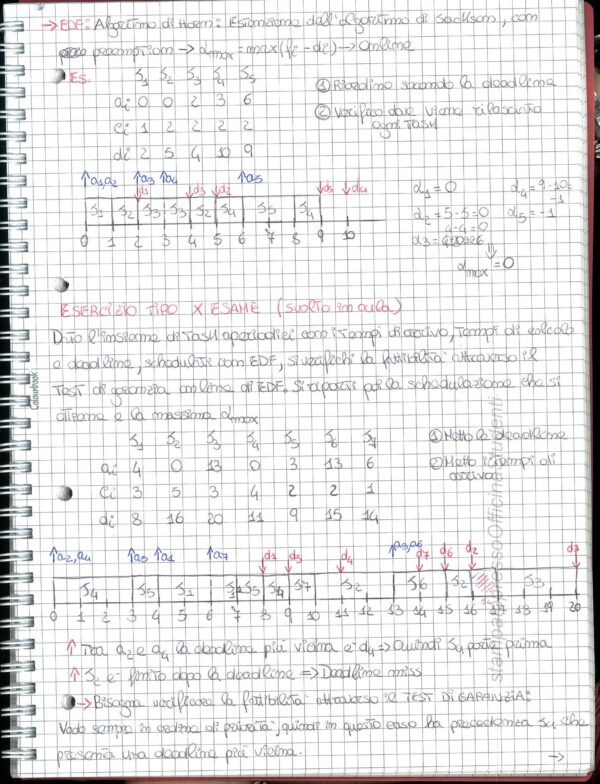 → EDF: Algoritmo di Horn: Estensione dell'algoritmo di Jackson, con
preemption → αmax = max(fi - di) → online
Es. J1 J2 J3 J4 J5
ai 0 0 2 3 6
ci 1 2 2 2 2
di 2 5 4 10 9
① Riordino secondo la deadline
② Verifico dove viene rilasciato
ogni task
↑a1,a2 ↑a3 ↑a4 ↑a5
d1 d3 d2 d5 d4
J1 J2 J3 J3 J2 J4 J5 J4
0 1 2 3 4 5 6 7 8 9 10
α1 = 0 α4 = 9-10=
-1
α2 = 5-5=0 α5 = -1
4-4=0
α3 =
αmax = 0
ESERCIZIO TIPO X ESAME (svolto in aula)
Dato l'insieme di task aperiodici con i tempi di arrivo, tempi di calcolo
e deadline, schedulati con EDF, si verifichi la fattibilità attraverso il
test di garanzia online di EDF. Si riporti poi la schedulazione che si
ottiene e la massima αmax
J1 J2 J3 J4 J5 J6 J7
ai 4 0 13 0 3 13 6
ci 3 5 3 4 2 2 1
di 8 16 20 11 9 15 14
① Metto le deadline
② Metto i tempi di
arrivo
↑a2,a4 ↑a5 ↑a1 ↑a7 d1 d5 d4 ↑a3,a6 d7 d6 d2 d3
J4 J5 J1 J5 J4 J7 J2 J6 J2 J3
0 1 2 3 4 5 6 7 8 9 10 11 12 13 14 15 16 17 18 19 20
↑ Tra a2 e a4 la deadline più vicina è d4 => Quindi J4 parte prima
↑ J2 è finito dopo la deadline => Deadline miss
→ Bisogna verificare la fattibilità attraverso il TEST DI GARANZIA:
Vado sempre in ordine di priorità, quindi in questo caso ha precedenza J4 che
presenta una deadline più vicina.
→
stampato presso Officine Studenti
Colourbook